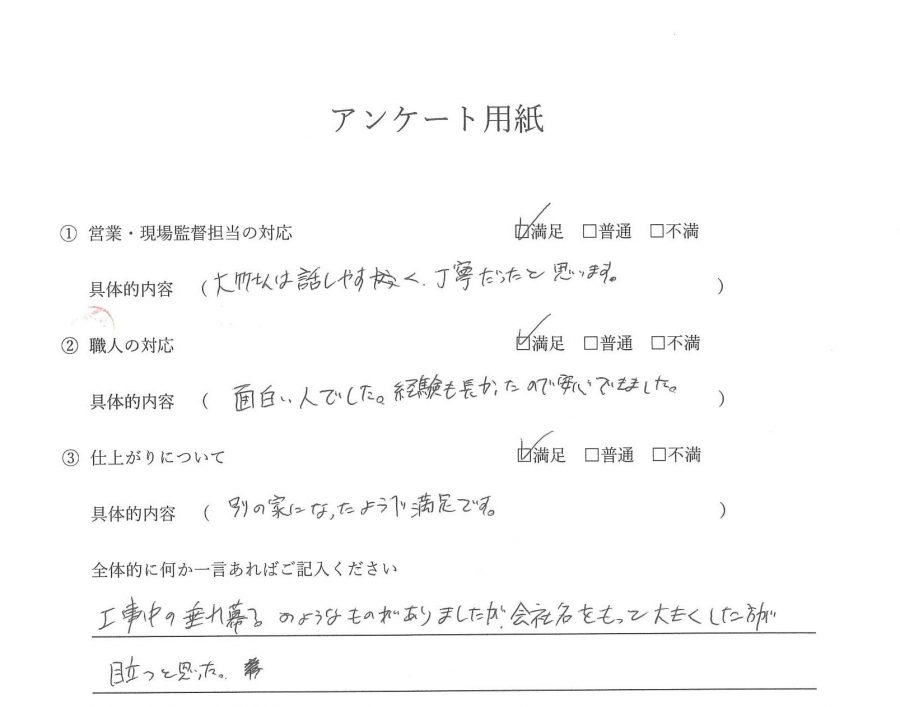 アンケート用紙
① 営業・現場監督担当の対応 ☑満足 □普通 □不満
具体的内容 (大竹さんは話しやすく、丁寧だったと思います。)
② 職人の対応 ☑満足 □普通 □不満
具体的内容 (面白い人でした。経験も長かったので安心できました。)
③ 仕上がりについて ☑満足 □普通 □不満
具体的内容 (別の家になったようで満足です。)
全体的に何か一言あればご記入ください
工事中の垂れ幕のようなものがありましたが、会社名をもって大きくした方が
目立つと思った。